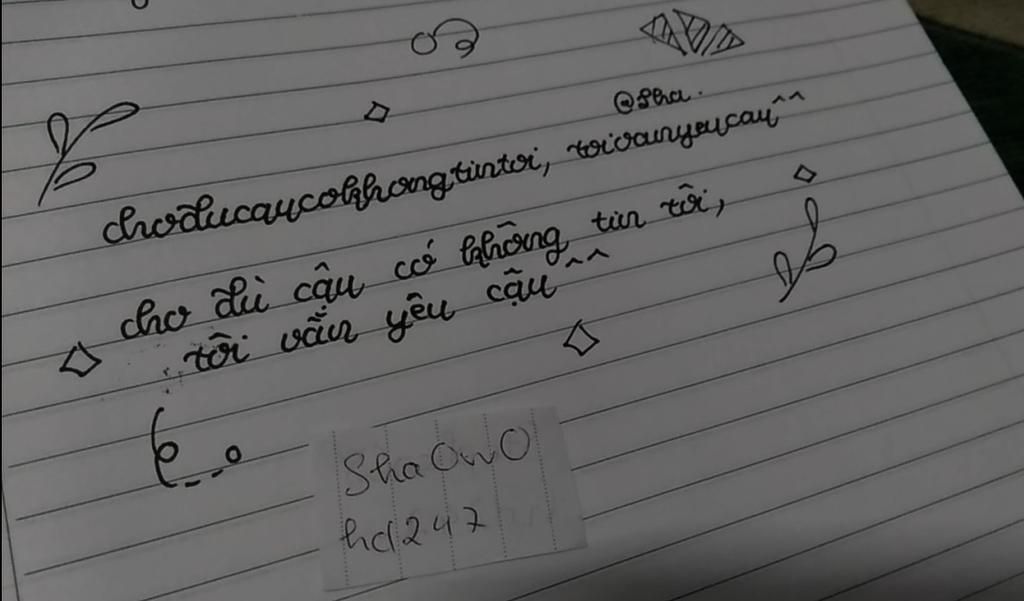 @Sha.
choducaucokhongtintoi, toivanyeucau^^
cho dù cậu có không tin tôi,
tôi vẫn yêu cậu^^
Sha OwO
hd247